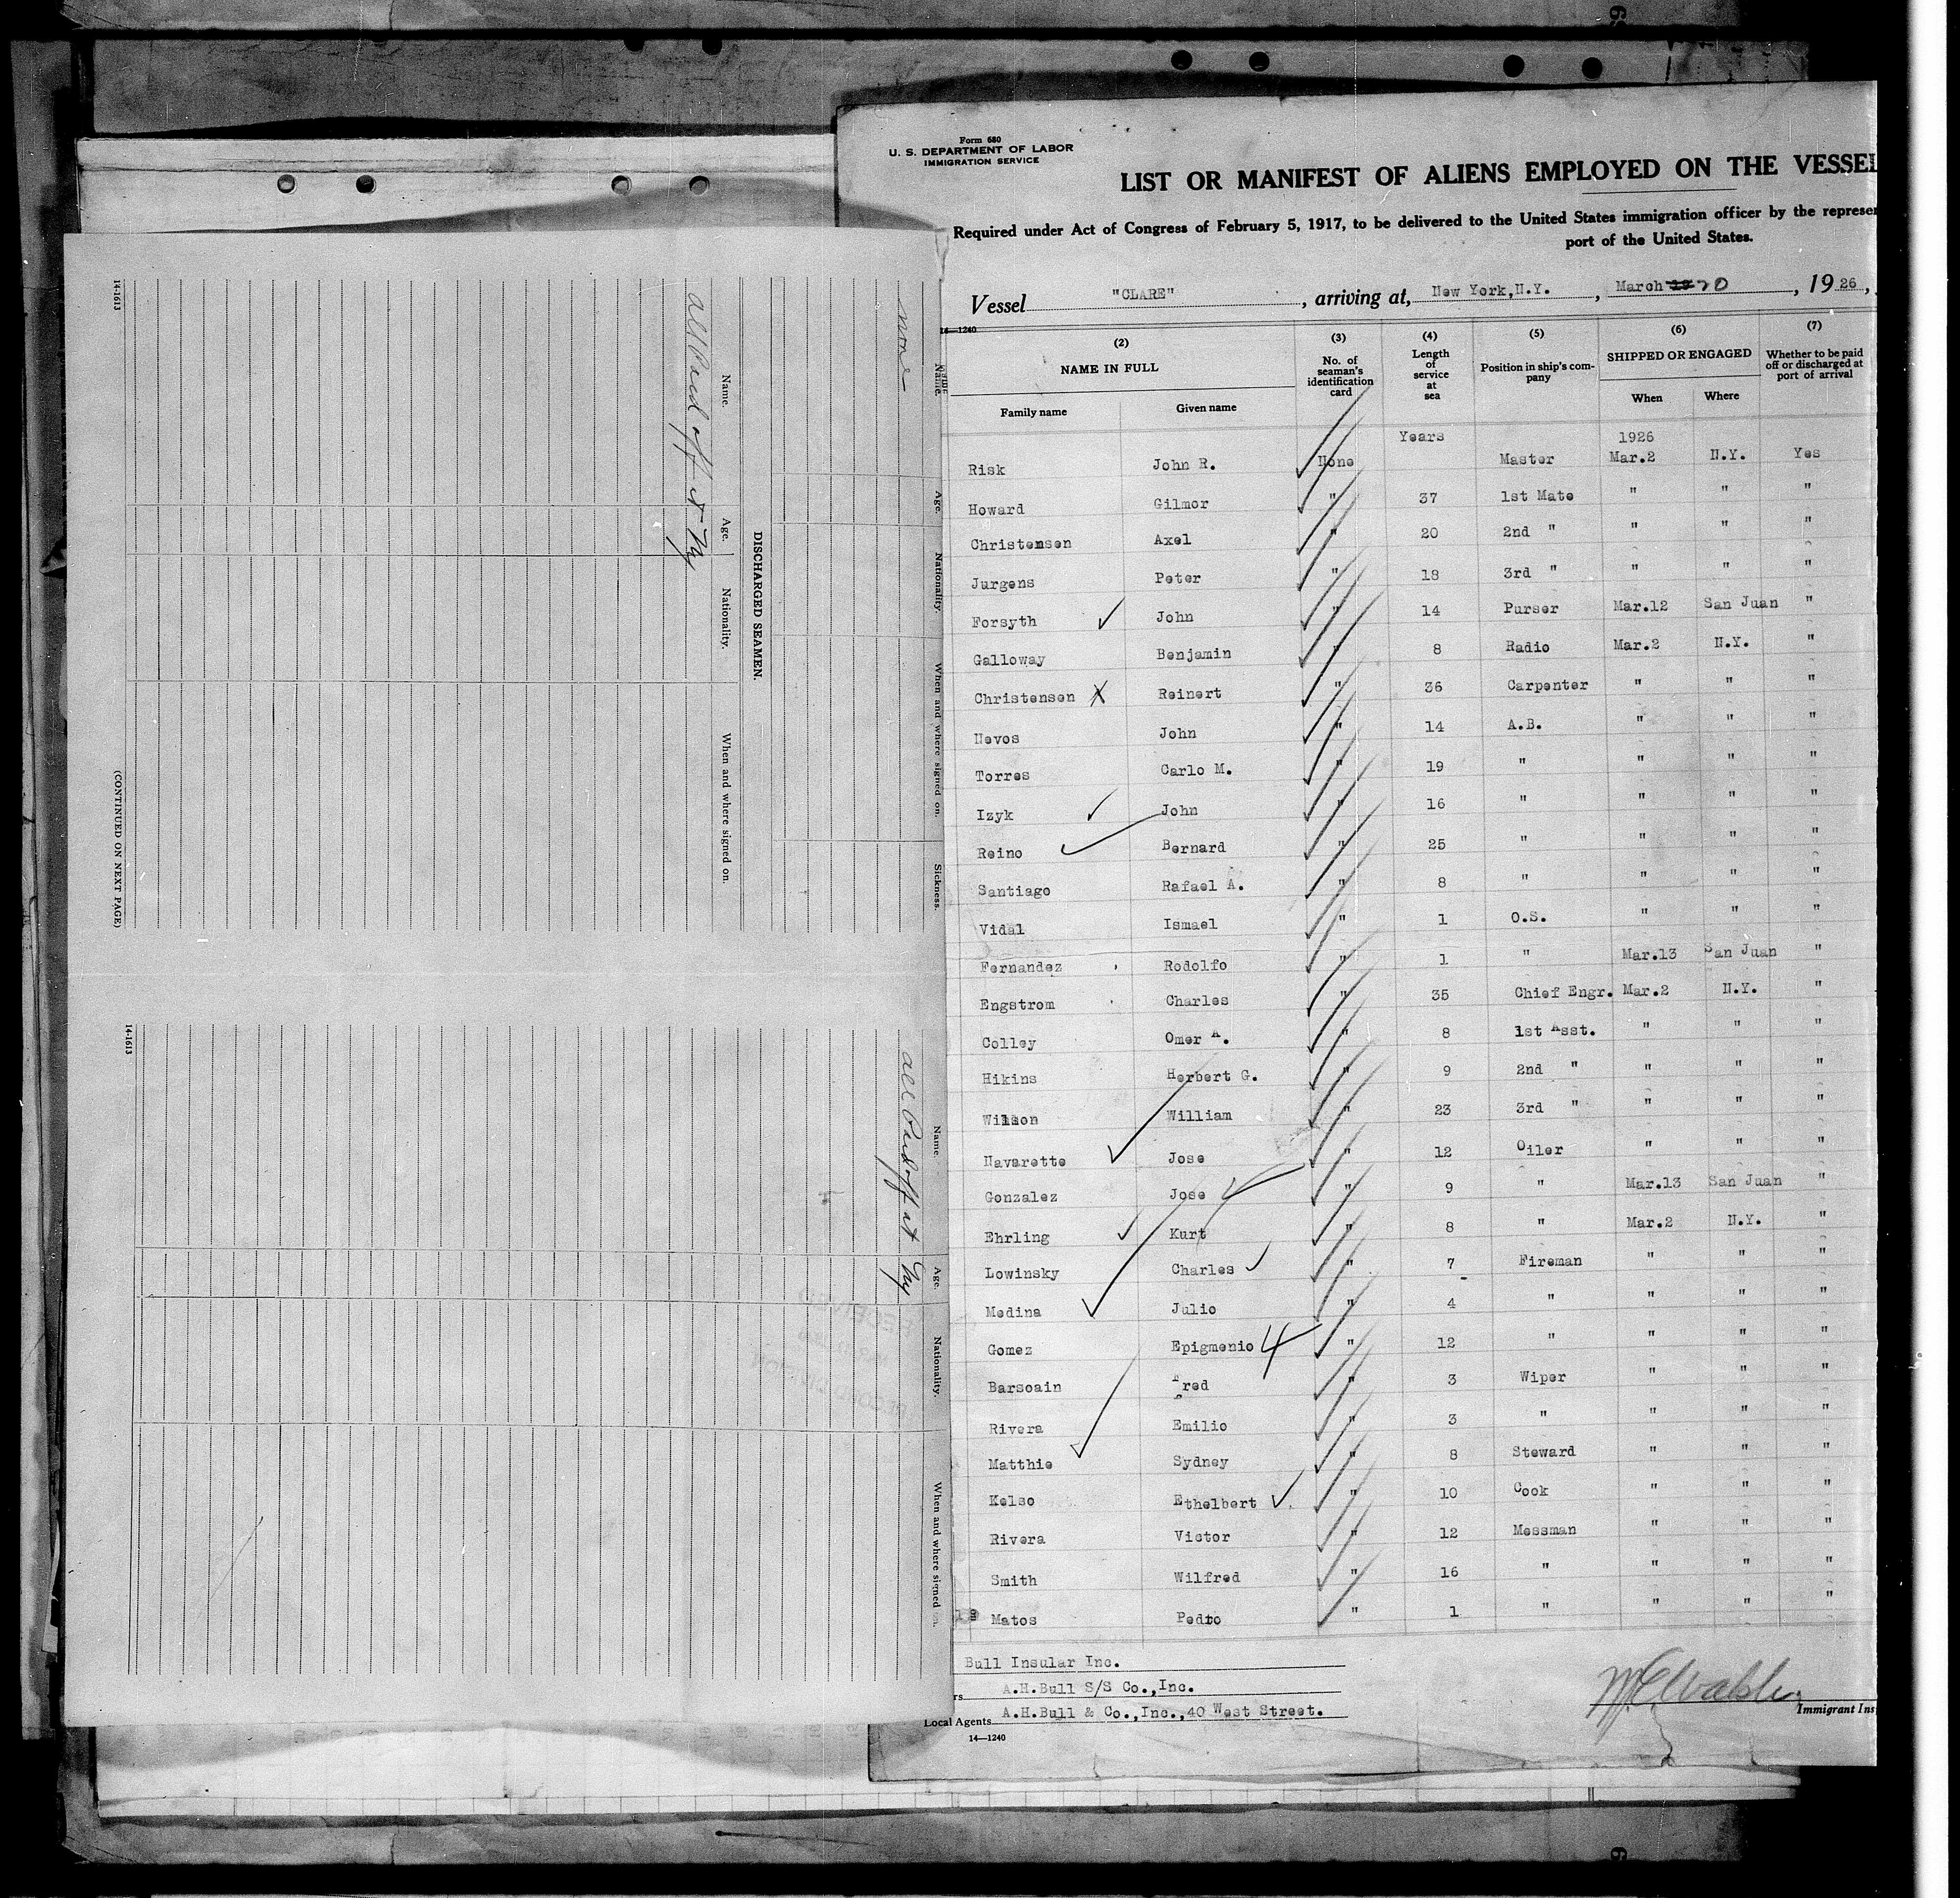 Form 680
U. S. DEPARTMENT OF LABOR
IMMIGRATION SERVICE
LIST OR MANIFEST OF ALIENS EMPLOYED ON THE VESSEL
Required under Act of Congress of February 5, 1917, to be delivered to the United States immigration officer by the represen
port of the United States.
Vessel "CLARE" , arriving at, New York,N.Y. , March 20 , 1926,
14—1240
(2) (3) (4) (5) (6) (7)
NAME IN FULL No. of seaman's identification card Length of service at sea Position in ship's company SHIPPED OR ENGAGED Whether to be paid off or discharged at port of arrival
Family name Given name When Where
Years 1926
Risk John R. None Master Mar.2 N.Y. Yes
Howard Gilmor " 37 1st Mate " " "
Christensen Axel " 20 2nd " " " "
Jurgens Peter " 18 3rd " " " "
Forsyth John " 14 Purser Mar.12 San Juan "
Galloway Benjamin " 8 Radio Mar.2 N.Y. "
Christensen Reinert " 36 Carpenter " " "
Nevos John " 14 A.B. " " "
Torres Carlo M. " 19 " " " "
Izyk John " 16 " " " "
Reino Bernard " 25 " " " "
Santiago Rafael A. " 8 " " " "
Vidal Ismael " 1 O.S. " " "
Fernandez Rodolfo " 1 " Mar.13 San Juan "
Engstrom Charles " 35 Chief Engr. Mar.2 N.Y. "
Colley Omer A. " 8 1st Asst. " " "
Hikins Herbert G. " 9 2nd " " " "
Wilson William " 23 3rd " " " "
Navarette Jose " 12 Oiler " " "
Gonzalez Jose " 9 " Mar.13 San Juan "
Ehrling Kurt " 8 " Mar.2 N.Y. "
Lowinsky Charles " 7 Fireman " " "
Medina Julio " 4 " " " "
Gomez Epigmenio 4 " 12 " " " "
Barsoain Fred " 3 Wiper " " "
Rivera Emilio " 3 " " " "
Matthie Sydney " 8 Steward " " "
Kelso Ethelbert " 10 Cook " " "
Rivera Victor " 12 Messman " " "
Smith Wilfred " 16 " " " "
Matos Pedro " 1 " " " "
Bull Insular Inc.
rs A.H.Bull S/S Co.,Inc.
Local Agents A.H.Bull & Co.,Inc.,40 West Street.
Immigrant Ins
14—1240
Name. Age. Nationality. When and where signed on. Sickness.
none
DISCHARGED SEAMEN.
Name. Age. Nationality. When and where signed on.
all Paid off at Ny
14-1613
(CONTINUED ON NEXT PAGE)
Name. Age. Nationality. When and where signed on.
all Paid off at Ny
14-1613